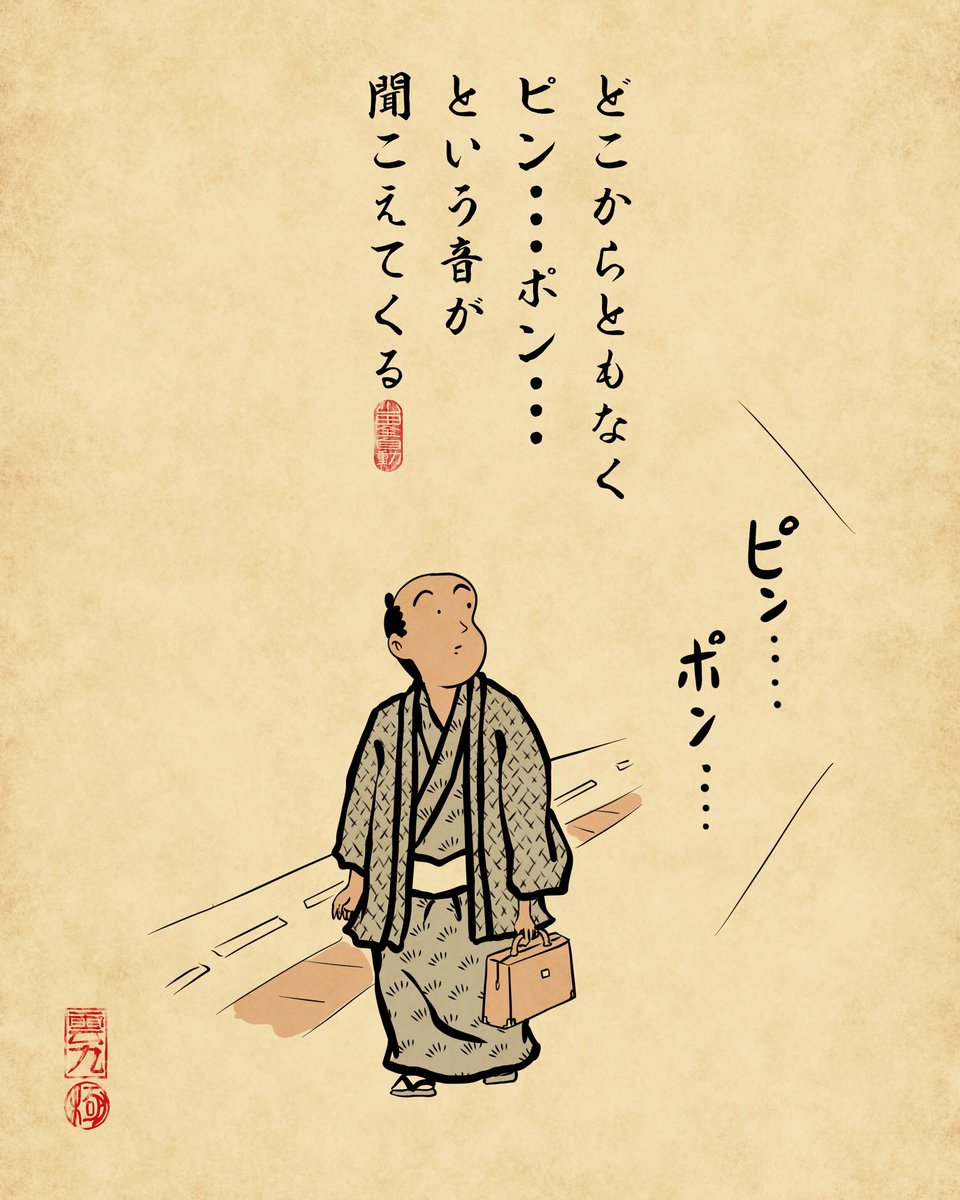 どこからともなく
ピン・・・ポン・・・
という音が
聞こえてくる
ピン‥‥
ポン‥‥